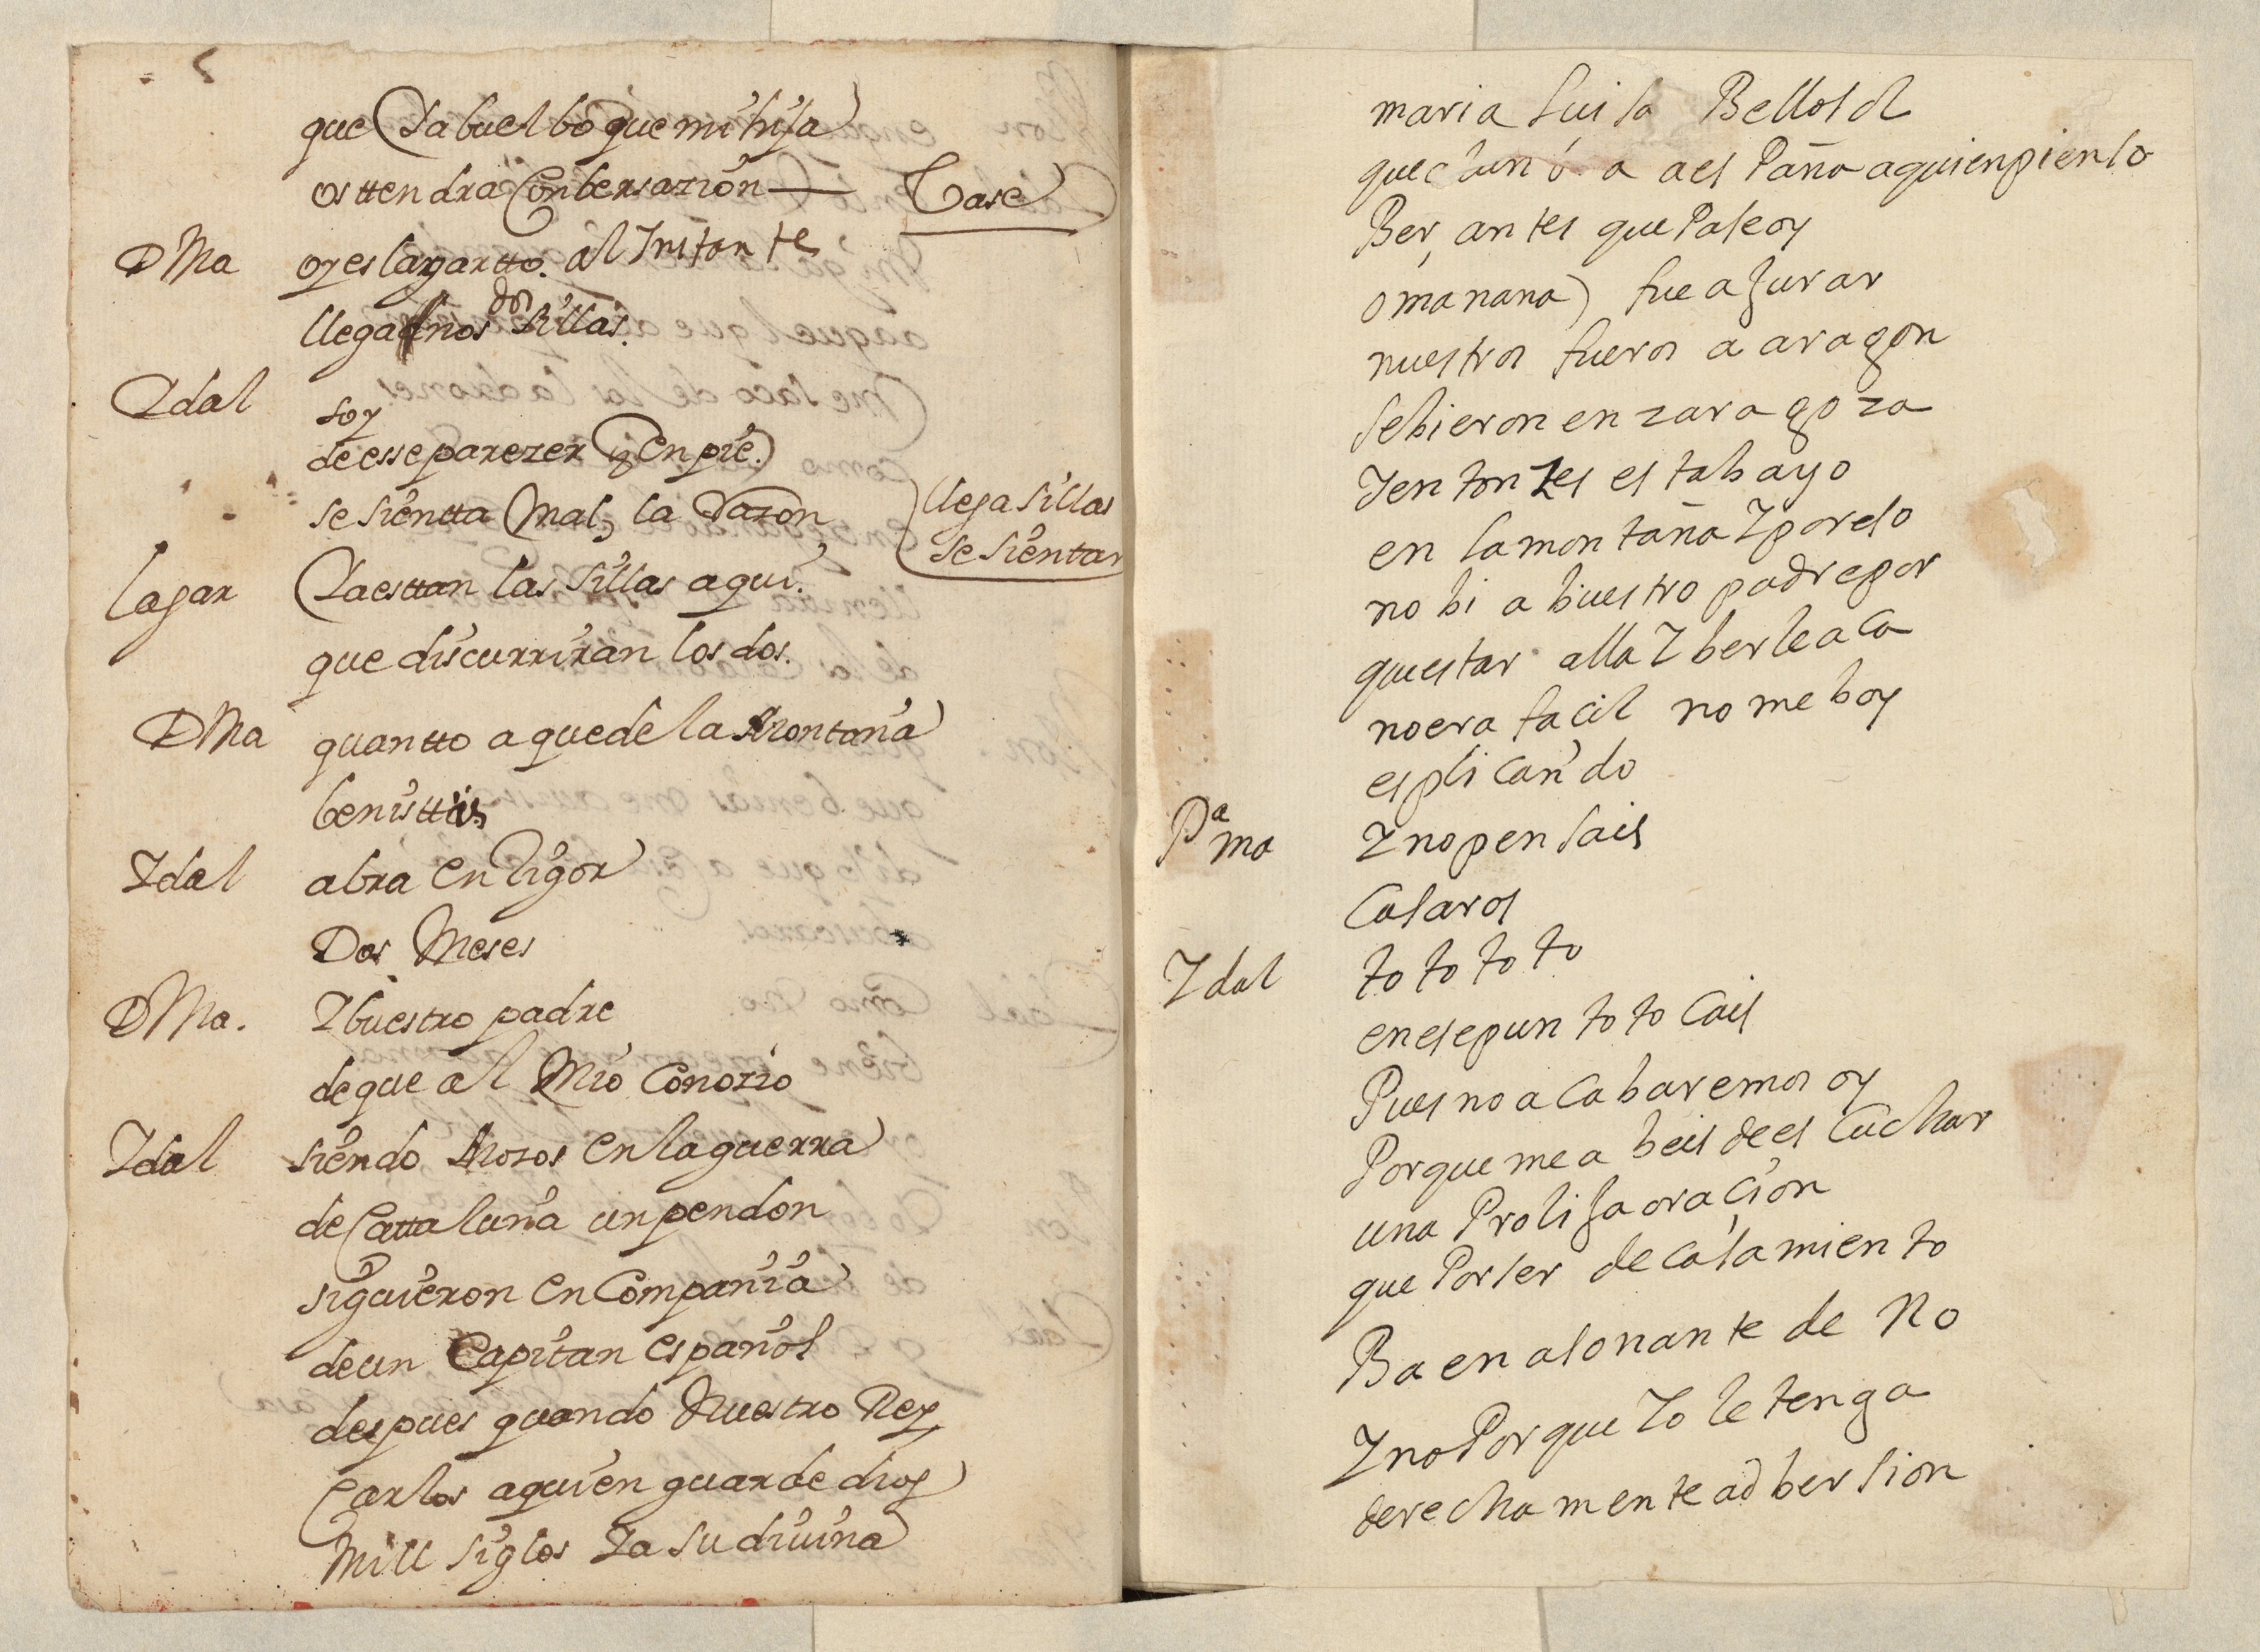 que Ya buelbo que mi hija
os ttendra Conbersazion — Vase
DMa oyes lagartto. al Instante
llegadnos dos sillas.
Ydal soy
de esse parezer q en pie
se sientta mal, la Razon llega sillas
se sientan
lagar Ya esttan las sillas aqui.
que discurriran los dos.
DMa quantto a que de la Montaña
benisttis
Ydal abra en Rigor
Dos Meses
DMa. Y buestro padre
de que al Mio Conozio
Ydal siendo Mozos en la guerra
de Cattaluña un pendon
siguieron en Compañia
de un Capitan español
despues quando Nuestro Rey
Carlos a quien guarde dios
Mill siglos Ya su diuina
maria luisa Bellosol
que a españa a quien pienso
Ber, antes que Pase oy
o mañana) fue a jurar
nuestros fueros a aragon
se bieron en zaragoza
Y entonzes estaba yo
en la montaña Y por eso
no bi a buestro padre por
questar alla Y berle aca
no era facil no me boy
esplicando
Dª ma Y no pensais
Casaros
Ydal to to to to
en ese punto tocais
Pues no acabaremos oy
Porque me abeis de escuchar
una Prolija oraçion
que Por ser de casamiento
Ba en asonante de No
Y no Porque Yo le tenga
derechamente adbersion